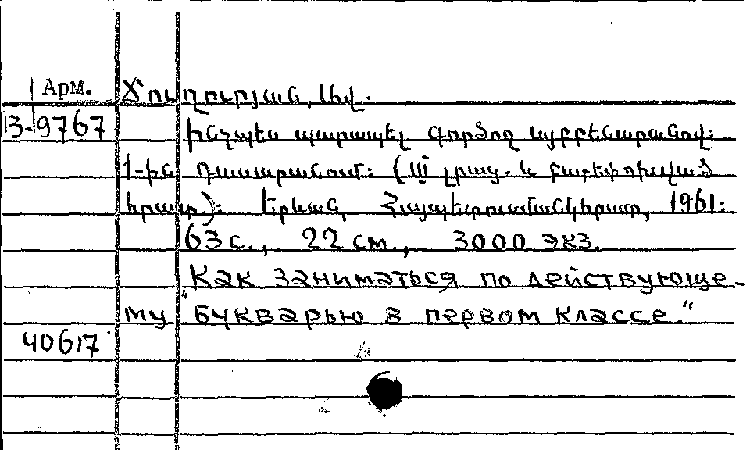 Арм.
Ճուղուրյան, Լևլ.
13-9767
Ինչպես պարապել գործող այբբենարանով։
1-ին դասարանում։ (III լրաց. և բարեփոխված
հրատ.)։ Երևան, Հայպետուսմանկհրատ, 1961։
63 с., 22 см., 3000 экз.
"Как заниматься по действующе-
му букварью в первом классе."
40617